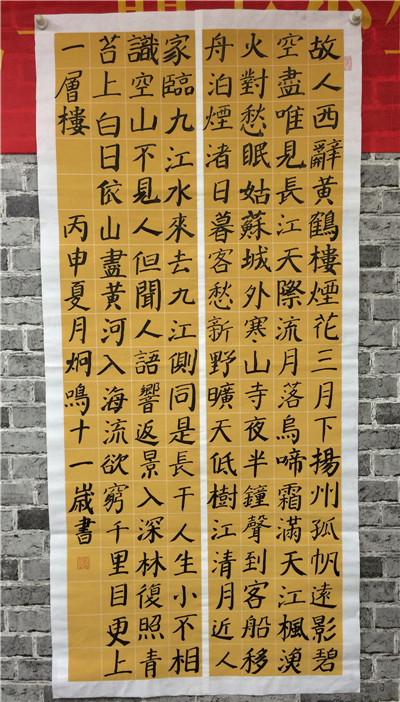 故人西辭黃鶴樓煙花三月下揚州孤帆遠影碧
空盡唯見長江天際流月落烏啼霜滿天江楓漁
火對愁眠姑蘇城外寒山寺夜半鐘聲到客船移
舟泊煙渚日暮客愁新野曠天低樹江清月近人
家臨九江水來去九江側同是長干人生小不相
識空山不見人但聞人語響返景入深林復照青
苔上白日依山盡黃河入海流欲窮千里目更上
一層樓 丙申夏月炯鳴十一歲書